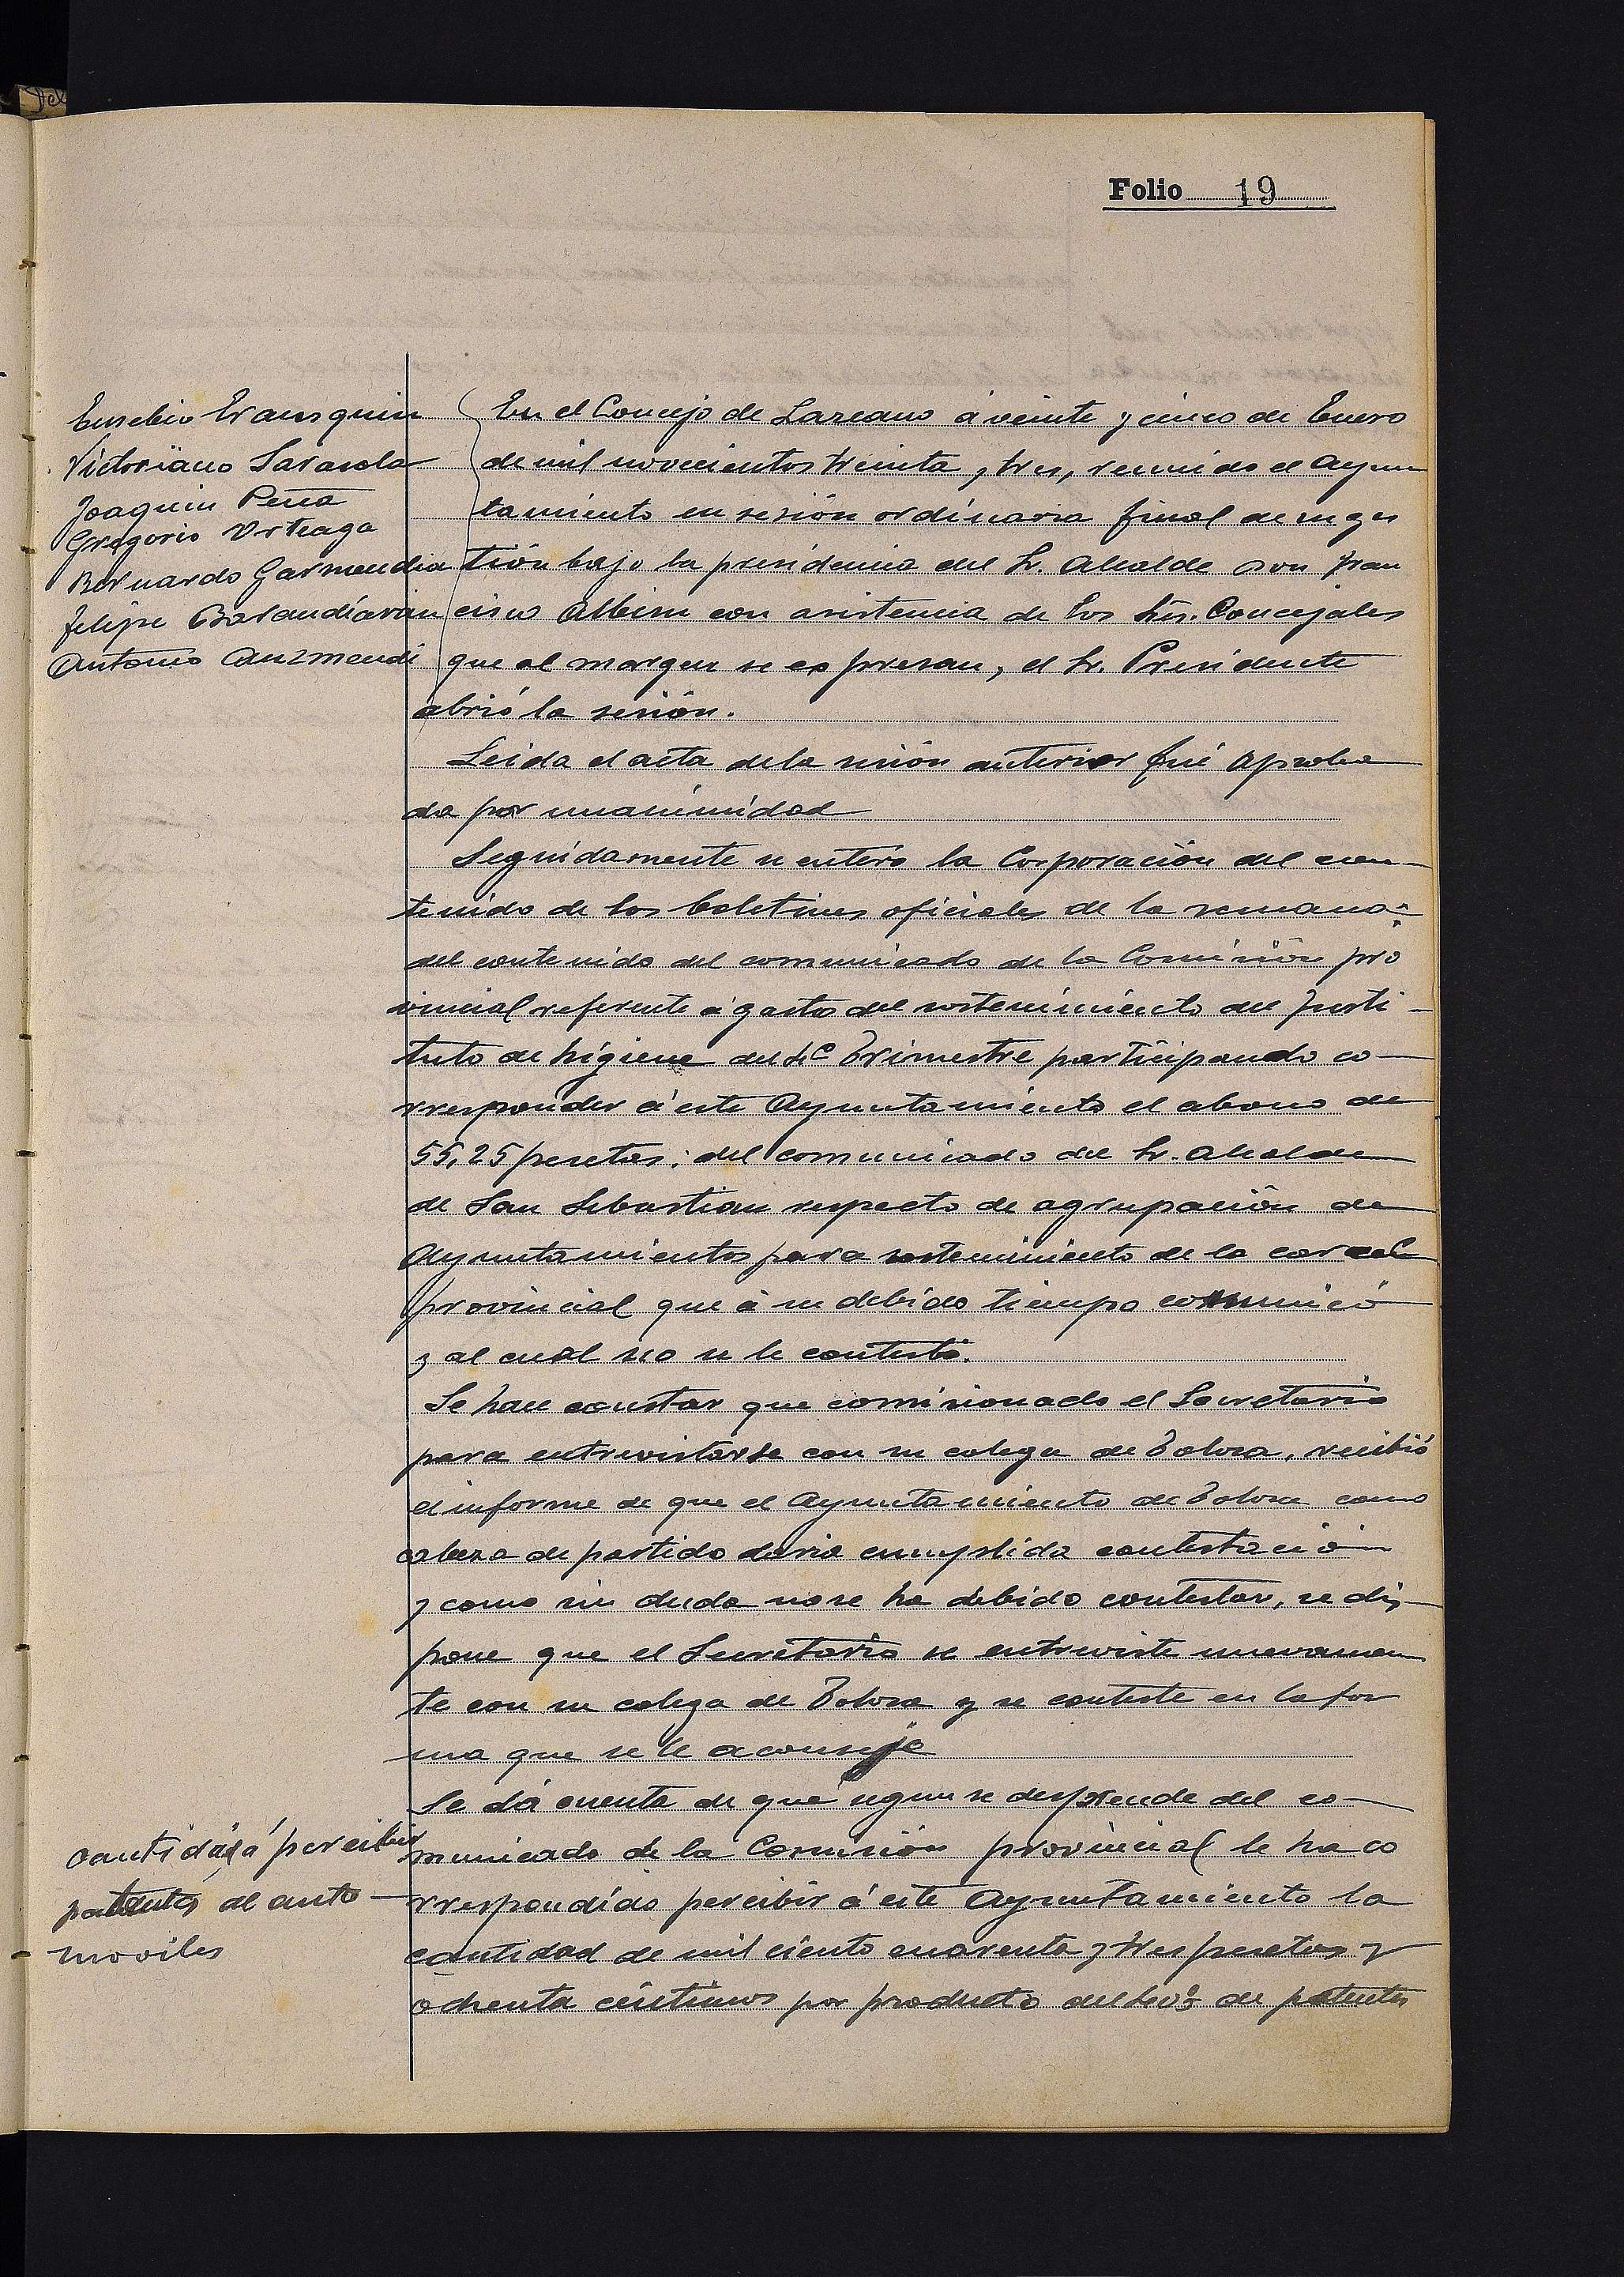 Folio 19
Eusebio Eransquin
Victoriano Sarasola
Joaquin Peña
Gregorio Urteaga
Bernardo Garmendia
Felipe Barandiaran
Antonio Auzmendi
En el Concejo de Lazcano á veinte y cinco de Enero
de mil novecientos treinta y tres, reunido el Ayun
tamiento en sesión ordinaria final de su ges
tión bajo la presidencia del Sr. Alcalde Don Fran
cisco Albisu con asistencia de los Srs. Concejales
que al margen se expresan, el Sr. Presidente
abrió la sesión.
Leida el acta de la sesión anterior fué aproba
da por unanimidad
Seguidamente se enteró la Corporación del con-
tenido de los boletines oficiales de la semana:
del contenido del comunicado de la Comisión pro
vincial referente á gasto del sostenimiento del Insti-
tuto de higiene del 4º Trimestre participando co-
rresponder á este Ayuntamiento el abono de
55,25 pesetas: del comunicado del Sr. Alcalde
de San Sebastian respecto de agrupación de
Ayuntamientos para sostenimiento de la carcel
provincial que á su debido tiempo comunicó
y al cual no se le contestó.
Se hace constar que comisionado el Secretario
para entrevistarse con su colega de Tolosa, recibió
el informe de que el Ayuntamiento de Tolosa como
cabeza de partido daria cumplida contestación
y como sin duda no se ha debido contestar, se dis-
pone que el Secretario se entreviste nuevamen
te con su colega de Tolosa y se conteste en la for
ma que se le aconseje
Se dá cuenta de que segun se desprende del co-
municado de la Comisión provincial le ha co
rrespondido percibir á este Ayuntamiento la
cantidad de mil ciento cuarenta y tres pesetas y
ochenta céntimos por producto del de patentes
cantidad á percibir
patentes de auto-
moviles